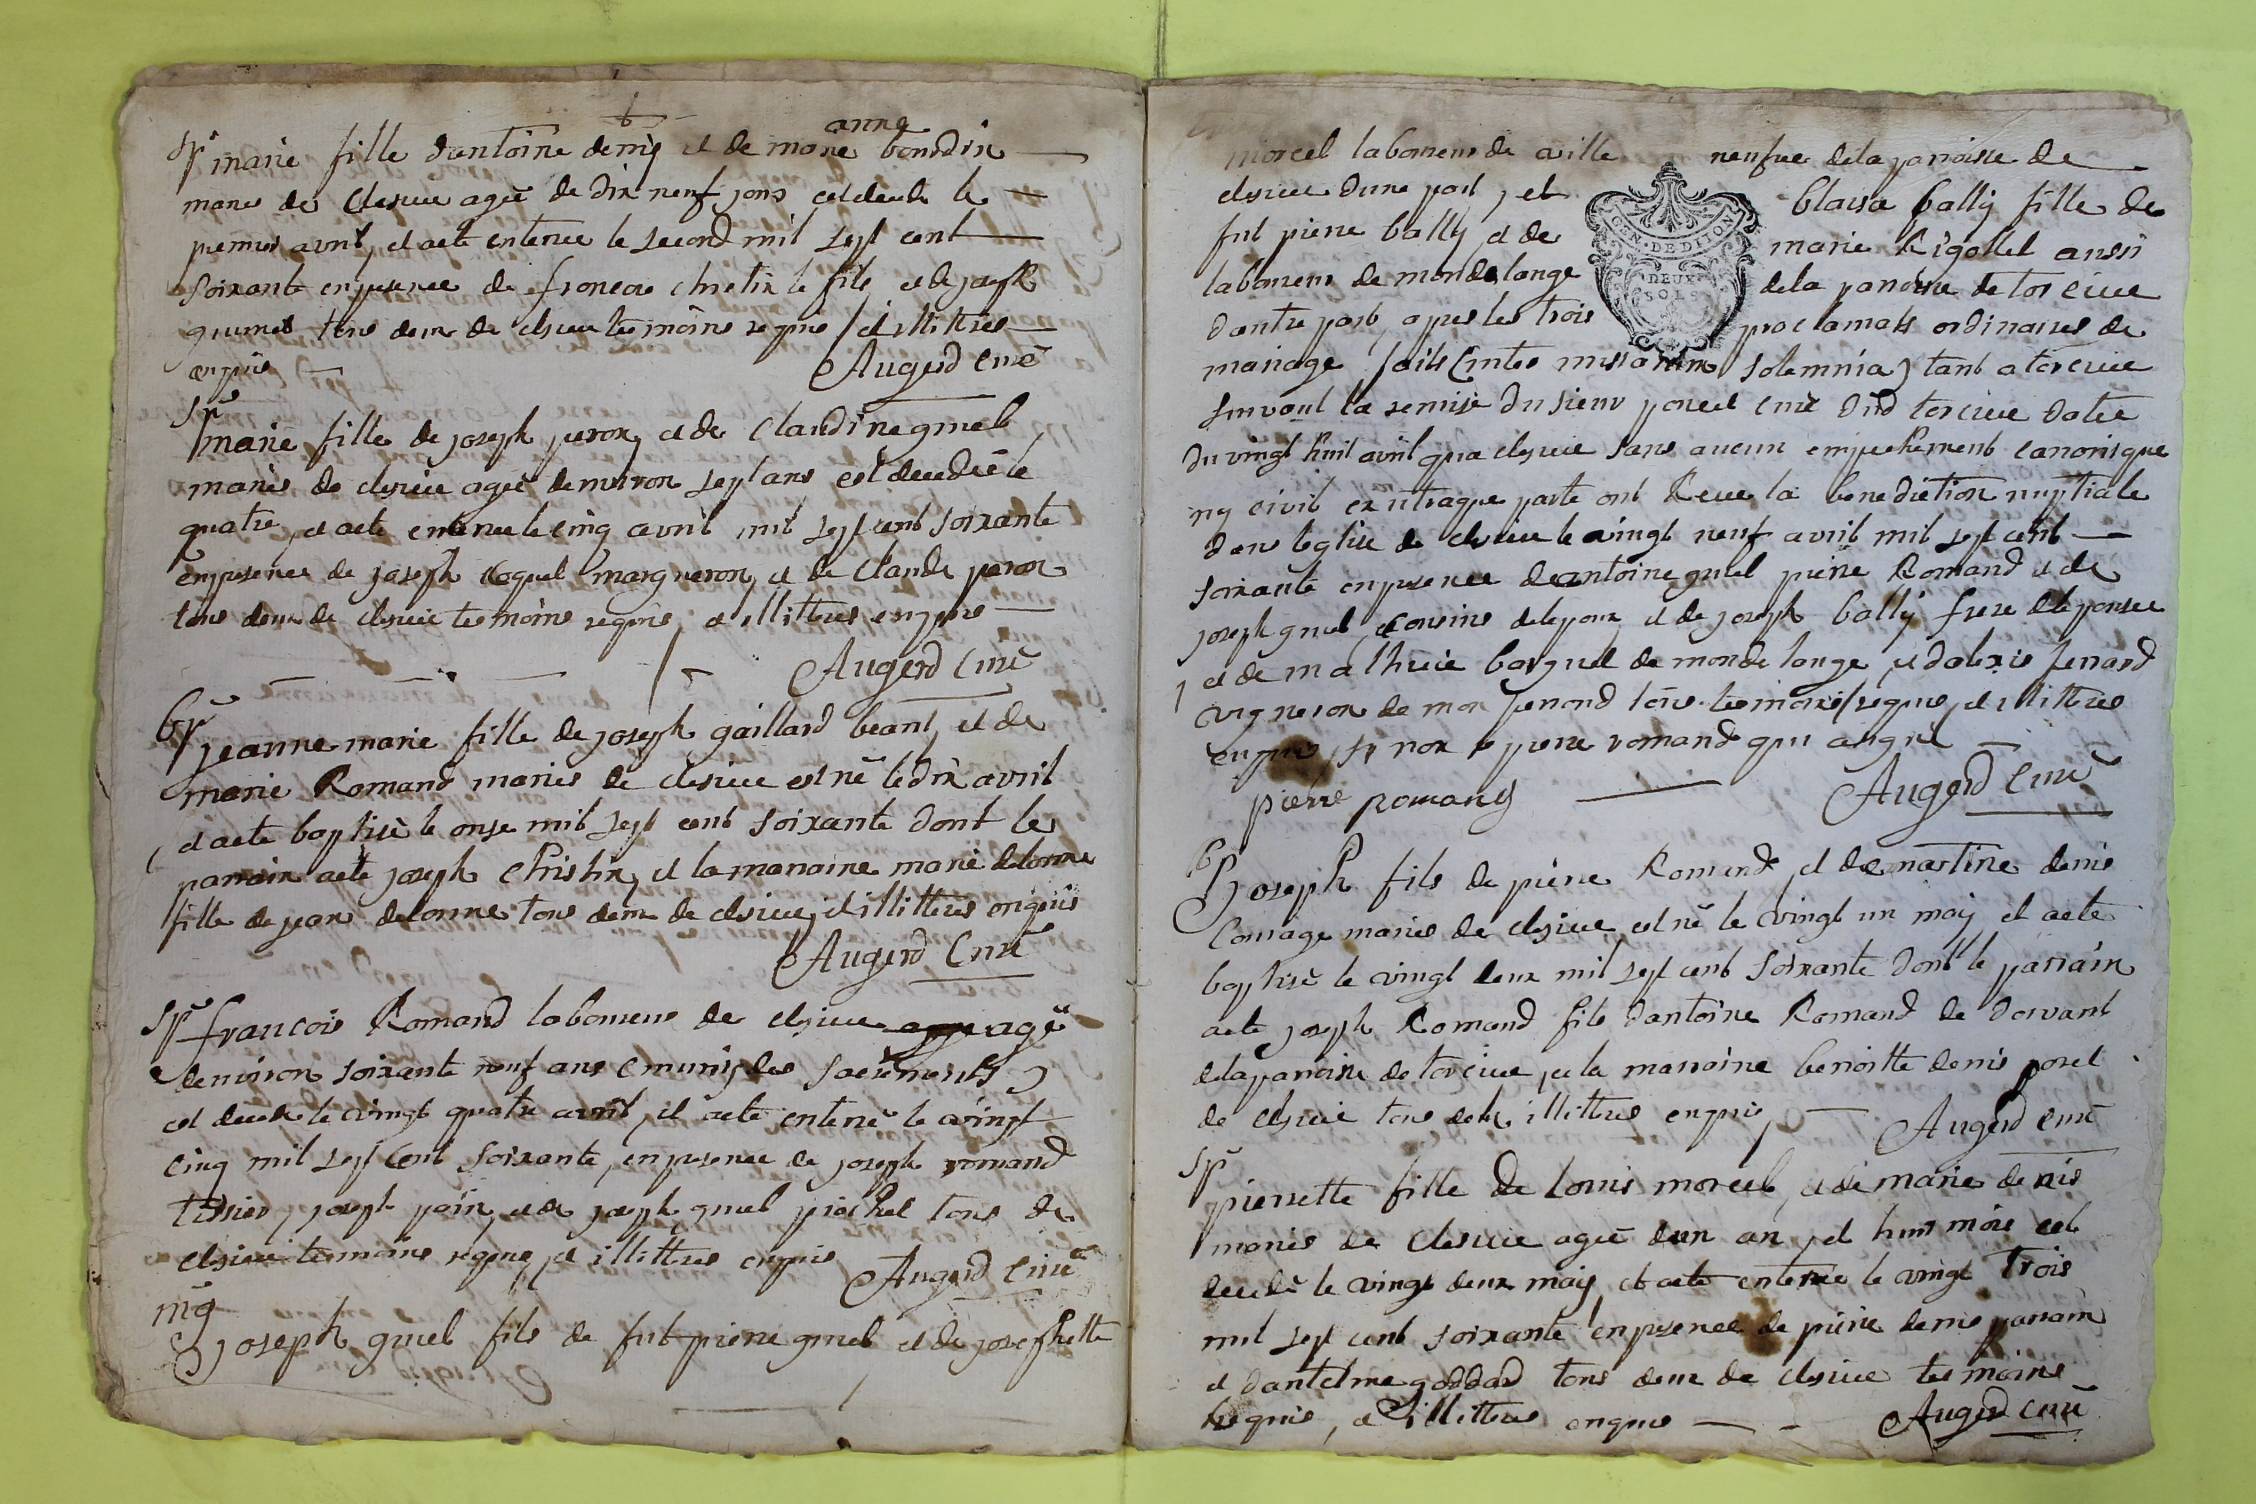 6
Sp marie fille dantoine denis et de marie anne bourdin
mariés de cleyzieu agée de dix neuf jours est decedée le
premier avril, et a eté enterrée le second mil sept cent
soixante en presence de francois christin le fils et de joseph
grumet tous deux de cleyzieu temoins requis / et illitterés
enquis Augerd curé
Sp
marie fille de joseph peron, et de Claudine gruel
mariés de cleyzieu agée denviron sept ans est decedée le
quatre, et a eté enterrée le cinq avril mil sept cent soixante
en presence de joseph margueron, et de Claude peron
tous deux de cleyzieu temoins requis, et illitterés enquis
Augerd curé
Bp
jeanne marie fille de joseph gaillard beant, et de
marie Romand mariés de cleyzieu est né le dix avril
et a eté baptisé le onze mil sept cent soixante dont le
parrain a eté joseph christin, et la marraine marie delorme
fille de jean delorme tous deux de cleyzieu, et illitterés enquis
Augerd curé
Sp francois Romand laboureur de cleyzieu agé
denviron soixante neuf ans (munis des sacrements)
est decedé le vingt quatre avril, et a eté enterré le vingt
cinq mil sept cent soixante, en presence de joseph romand
tissier, joseph et de joseph gruel tous de
cleyzieu temoins requis, et illitterés enquis Augerd curé
mg
joseph gruel fils de fut pierre gruel et de josephette
morcel laboureur de ville neufve de la parroisse de
cleyzieu dune part, et blaisa bally fille de
fut pierre bally, et de marie Rigollet aussi
laboureur de mondelange de la parroisse de torcieu
dautre part, apres les trois proclamats ordinaires de
IGEN. DE DIJON
DEUX
SOLS
mariage faits (inter missarum solemnia) tant a torcieu
suivant la remise du sieur poncet curé dud torcieu datée
du vingt huit avril qua cleyzieu sans aucun empechement canonique
ny civil ex utraque parte ont Receu la benediction nuptiale
dans leglise de cleyzieu le vingt neuf avril mil sept cent
soixante en presence dantoine gruel pierre Romand et de
joseph gruel, cousins de lepoux, et de joseph bally frere de lepousee
et de mathieu de mondelange, et dalexis
vigneron de mon tous temoins requis, et illitterés
enquis, si non pierre romand qui a signé
pierre romand Augerd curé
Bp joseph fils de pierre Romand, et de martine denis
mariés de cleyzieu est né le vingt un may et a eté
baptisé le vingt deux mil sept cent soixante dont le parrain
a eté joseph Romand fils dantoine Romand de dorvant
de la parroisse de torcieu, et la marraine benoitte denis
de cleyzieu tous deux illitterés enquis, Augerd curé
Sp
pierrette fille de louis morcel, et de marie denis
mariés de cleyzieu agée dun an, et huit mois est
decedé le vingt deux may, et a eté enterrée le vingt trois
mil sept cent soixante en presence de pierre denis parrain
et dantelme goddard tous deux de cleyzieu temoins
requis, et illitterés enquis Augerd curé